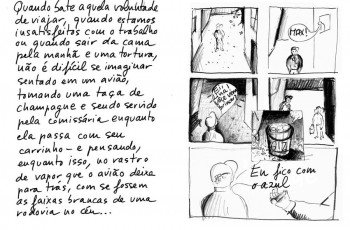 Quando bate aquela voluptade
de viajar, quando estamos
insatisfeitos com o trabalho
ou quando sair da cama
pela manhã é uma tortura,
não é difícil se imaginar
sentado em um avião,
tomando uma taça de
champagne e sendo servido
pela comissária enquanto
ela passa com seu
carrinho - e pensando,
enquanto isso, no rastro
de vapor que o avião deixa
para trás, com se fossem
as faixas brancas de uma
rodovia no céu...
MAX!
Eu fico com
o azul